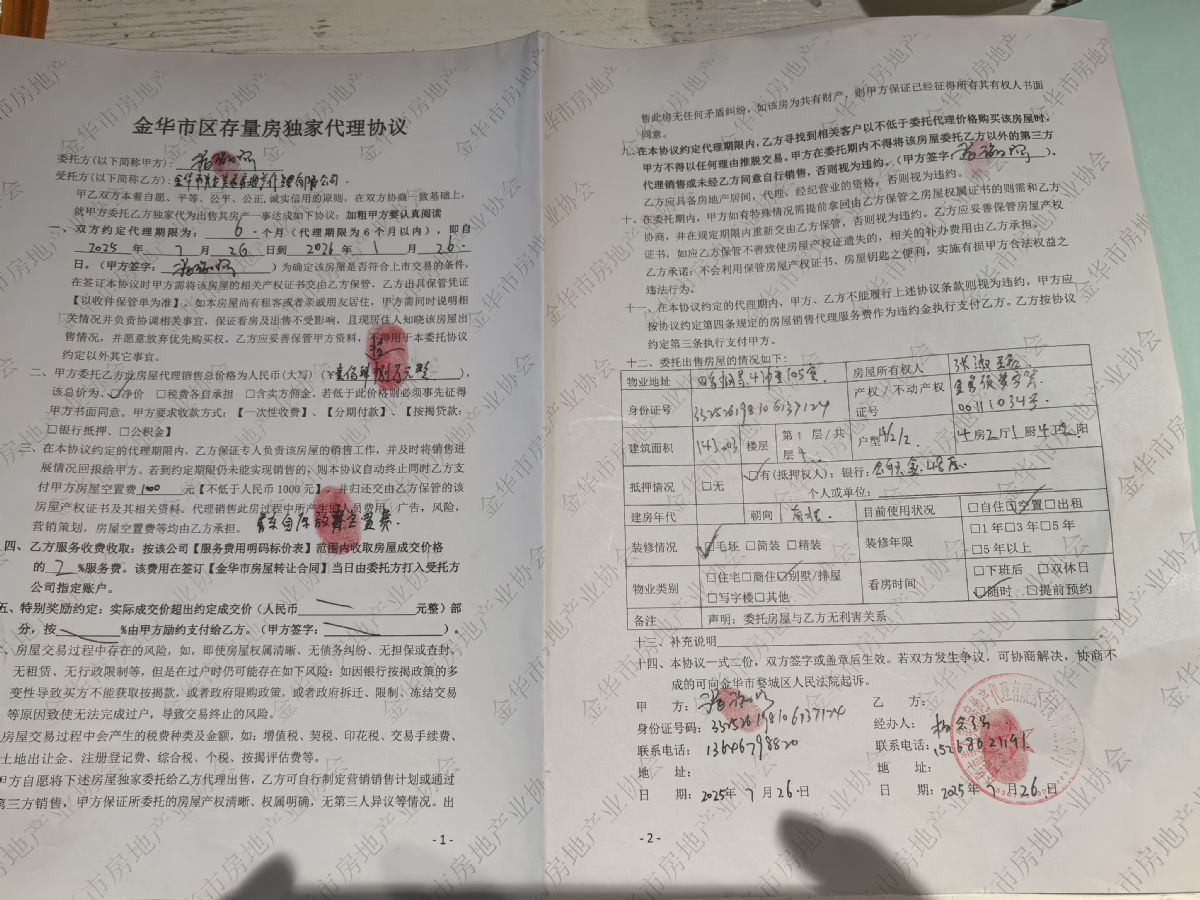 金华市区存量房独家代理协议
委托方(以下简称甲方):
受托方(以下简称乙方):金华市
甲乙双方本着自愿、平等、公平、公正,诚实信用的原则,在双方协商一致基础上,
就甲方委托乙方独家代为出售其房产一事达成如下协议:加粗甲方要认真阅读
一、双方约定代理期限为: 6 个月(代理期限为6个月以内),即自
2025 年 7 月 26 日到 2026 年 1 月 26
日。(甲方签字: )为确定该房屋是否符合上市交易的条件,
在签订本协议时甲方需将该房屋的相关产权证书交由乙方保管,乙方出具保管凭证
【以收件保管单为准】、如本房屋尚有租客或者亲戚朋友居住,甲方需同时说明相
关情况并负责协调相关事宜,保证看房及出售不受影响,且现居住人知晓该房屋出
售情况,并愿意放弃优先购买权。乙方应妥善保管甲方资料,不得用于本委托协议
约定以外其它事宜。
二、甲方委托乙方此房屋代理销售总价格为人民币(大写)(¥壹佰 万元整),
该总价为、☑净价 □税费各自承担 □含卖方佣金。若低于此价格则必须事先征得
甲方书面同意。甲方要求收款方式:【一次性收费】、【分期付款】、【按揭贷款:
□银行抵押、□公积金】
三、在本协议约定的代理期限内,乙方保证专人负责该房屋的销售工作,并及时将销售进
展情况回报给甲方。若到约定期限仍未能实现销售的,则本协议自动终止同时乙方支
付甲方房屋空置费 100 元【不低于人民币1000元】,并归还交由乙方保管的该
房屋产权证书及其相关资料。代理销售此房过程中所产生的人员费用,广告,风险,
营销策划,房屋空置费等均由乙方承担。 放弃空置费.
四、乙方服务收费收取:按该公司【服务费用明码标价表】范围内收取房屋成交价格
的 2 %服务费。该费用在签订【金华市房屋转让合同】当日由委托方打入受托方
公司指定账户。
五、特别奖励约定:实际成交价超出约定成交价(人民币 元整)部
分,按 %由甲方励约支付给乙方。(甲方签字: )。
、房屋交易过程中存在的风险,如,即使房屋权属清晰、无债务纠纷、无担保或查封、
无租赁、无行政限制等,但是在过户时仍可能存在如下风险:如因银行按揭政策的多
变性导致买方不能获取按揭款,或者政府限购政策,或者政府拆迁、限制、冻结交易
等原因致使无法完成过户,导致交易终止的风险。
房屋交易过程中会产生的税费种类及金额,如:增值税、契税、印花税、交易手续费、
土地出让金、注册登记费、综合税、个税、按揭评估费等。
甲方自愿将下述房屋独家委托给乙方代理出售,乙方可自行制定营销销售计划或通过
第三方销售,甲方保证所委托的房屋产权清晰、权属明确,无第三人异议等情况。出
-1-
售此房无任何矛盾纠纷,如该房为共有财产,则甲方保证已经征得所有其有权人书面
同意。
九、在本协议约定代理期限内,乙方寻找到相关客户以不低于委托代理价格购买该房屋时,
甲方不得以任何理由推脱交易。甲方在委托期内不得将该房屋委托乙方以外的第三方
代理销售或未经乙方同意自行销售,否则视为违约。(甲方签字: )。
乙方应具备房地产居间,代理,经纪营业的资格,否则视为违约。
十、在委托期内,甲方如有特殊情况需提前拿回由乙方保管之房屋权属证书的则需和乙方
协商,并在规定期限内重新交由乙方保管,否则视为违约。乙方应妥善保管房屋产权
证书,如应乙方保管不善致使房屋产权证遗失的,相关的补办费用由乙方承担。
乙方承诺:不会利用保管房屋产权证书、房屋钥匙之便利,实施有损甲方合法权益之
违法行为。
十一、在本协议约定的代理期内,甲方、乙方不能履行上述协议条款则视为违约,甲方应
按协议约定第四条规定的房屋销售代理服务费作为违约金执行支付乙方。乙方按协议
约定第三条执行支付甲方。
十二、委托出售房屋的情况如下:
物业地址 105室 房屋所有权人
身份证号 332526198106137124 产权/不动产权证号 00111034号
建筑面积 143.03 楼层 第1层/共层4 户型 4/2/2 4房2厅1厨4卫 阳
抵押情况 □无 ☑有(抵押权人):银行:
个人或单位:
建房年代 朝向 南北 目前使用状况 □自住☑空置□出租
装修情况 ☑毛坯 □简装 □精装 装修年限 □1年□3年□5年
□5年以上
物业类别 □住宅□商住☑别墅/排屋 看房时间 □下班后 □双休日
□写字楼□其他 ☑随时 □提前预约
备注 声明:委托房屋与乙方无利害关系
十三、补充说明 。
十四、本协议一式二份,双方签字或盖章后生效。若双方发生争议,可协商解决,协商不
成的可向金华市婺城区人民法院起诉。
甲 方: 乙 方:
身份证号码:332526198106137124 经办人:
联系电话:13646798820 联系电话:15268621191
地 址: 地 址:
日 期:2025年7月26日 日 期:2025年7月26日
-2-